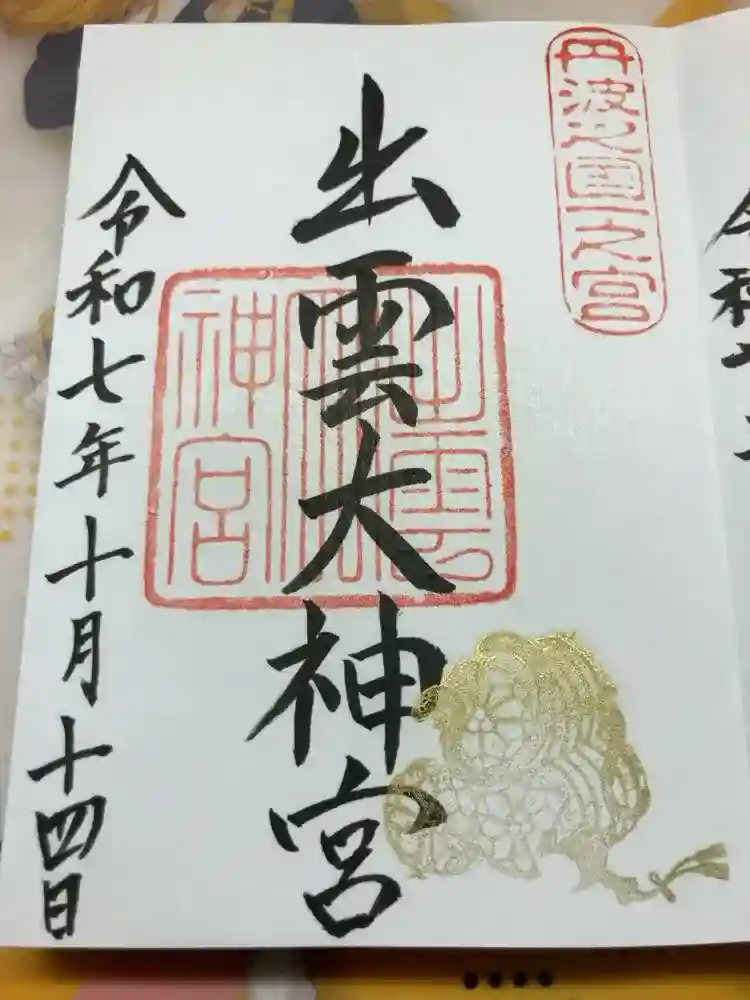 丹波之國一之宮
出雲大神宮
出雲大神宮
令和七年十月十四日